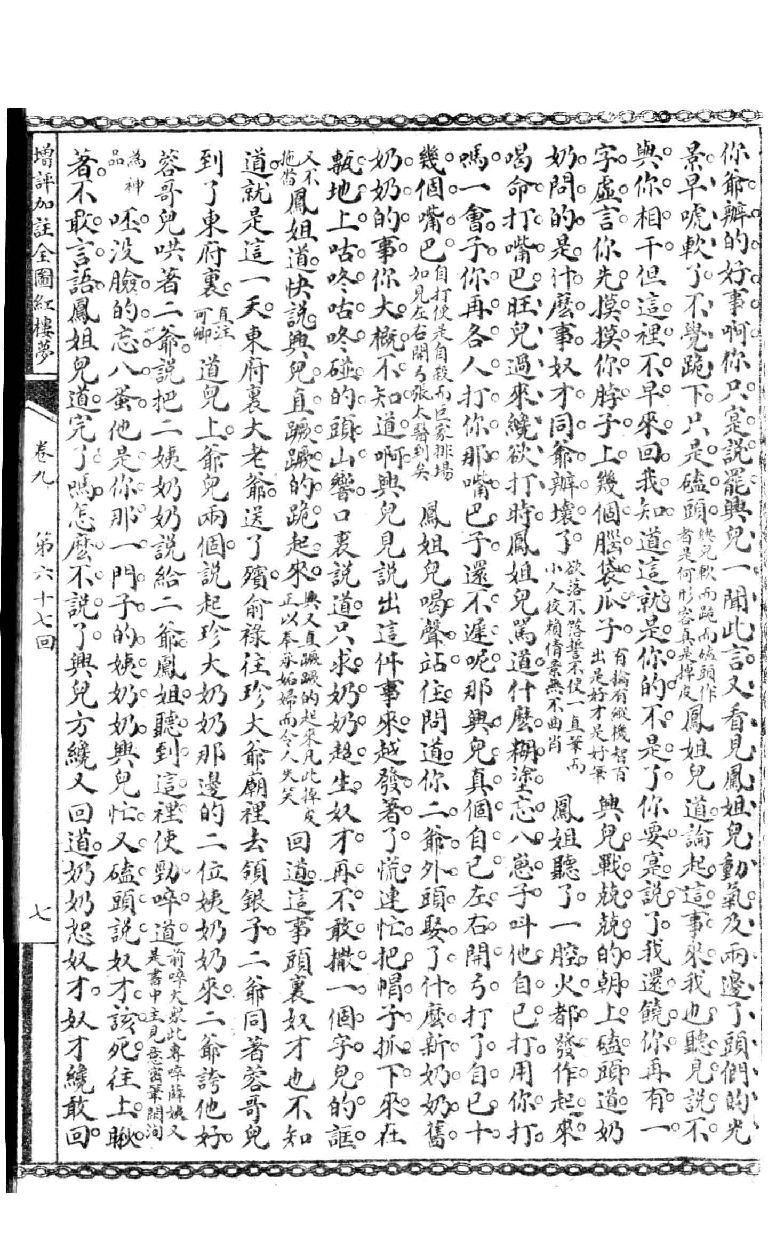 你爺辦的好事啊你只寔說罷興兒一聞此言又看見鳳姐兒動氣及兩邊丫頭們的光
景早唬軟了不覺跪下只是磕頭 鳳姐兒道論起這事來我也聽見說不
與你相干但這裡不早來回我知道這就是你的不是了你要寔說了我還饒你再有一
字虛言你先摸摸你脖子上幾個腦袋瓜子 興兒戰兢兢的朝上磕頭道奶
奶問的是什麼事奴才同爺辦壞了 鳳姐聽了一腔火都發作起來
喝命打嘴巴旺兒過來纔欲打時鳳姐兒罵道什麼糊塗忘八崽子叫他自己打用你打
嗎一會子你再各人打你那嘴巴子還不遲呢那興兒真個自己左右開弓打了自己十
幾個嘴巴 自打便是自殺而巨家排場如見左右開弓張大醫到矣 鳳姐兒喝聲站住問道你二爺外頭娶了什麼新奶奶舊
奶奶的事你大概不知道啊興兒見說出這件事來越發著了慌連忙把帽子抓下來在
甎地上咕咚咕咚碰的頭山響口裏說道只求奶奶超生奴才再不敢撒一個字兒的謊
又不拖沓 鳳姐道快說興兒直蹶蹶的跪起來 興又直蹶蹶的起來凡此掉皮正以奉承妬婦而令人失笑 回道這事頭裏奴才也不知
道就是這一天東府裏大老爺送了殯俞祿往珍大爺廟裡去領銀子二爺同著蓉哥兒
到了東府裏 直注可卿 道兒上爺兒兩個說起珍大奶奶那邊的二位姨奶奶來二爺誇他好
蓉哥兒哄著二爺說把二姨奶奶說給二爺鳳姐聽到這裡使勁啐道
為神品 呸沒臉的忘八蛋他是你那一門子的姨奶奶興兒忙又磕頭說奴才該死往上瞅
著不敢言語鳳姐兒道完了嗎怎麼不說了興兒方纔又回道奶奶恕奴才奴才纔敢回
增評加註全圖紅樓夢
卷九 第六十七回
七